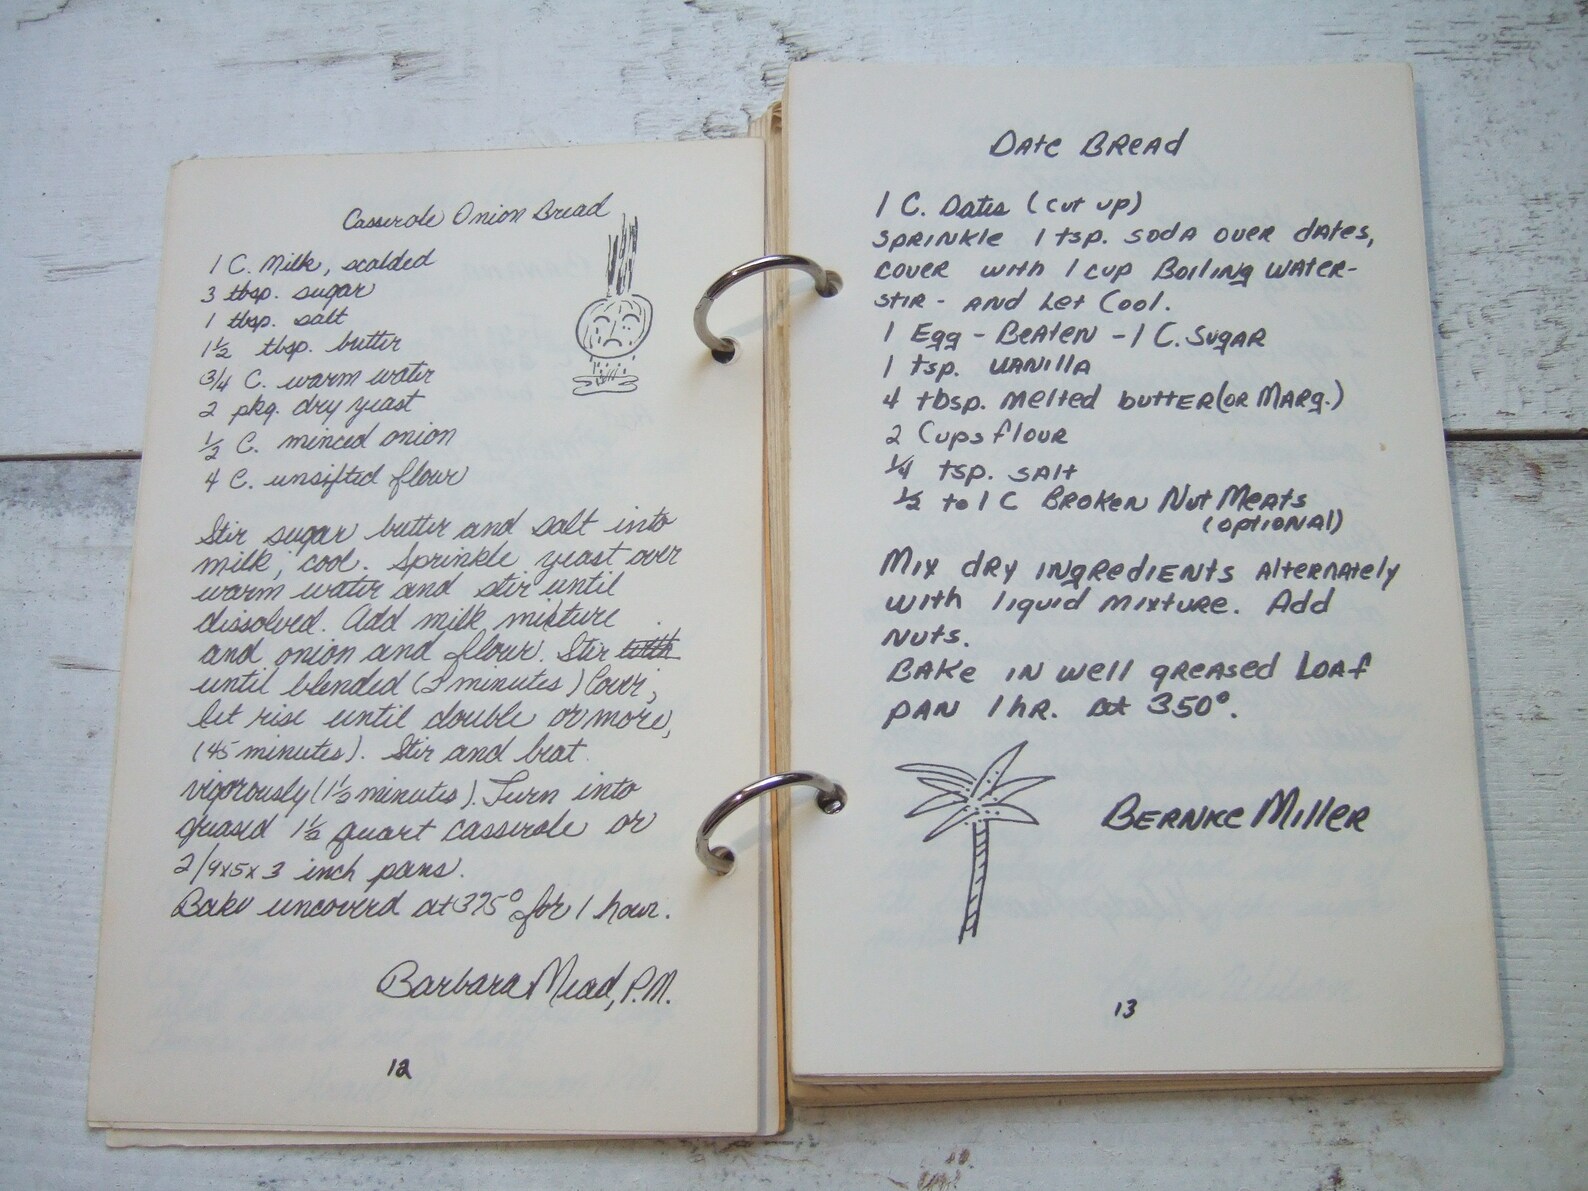 Casserole Onion Bread
1 C. Milk, scalded
3 tbsp. sugar
1 tbsp. salt
1½ tbsp. butter
3/4 C. warm water
2 pkg. dry yeast
½ C. minced onion
4 C. unsifted flour
Stir sugar butter and salt into
milk; cool. Sprinkle yeast over
warm water and stir until
dissolved. Add milk mixture
and onion and flour. Stir
until blended (2 minutes) Cover,
let rise until double or more,
(45 minutes). Stir and beat
vigorously (1½ minutes). Turn into
greased 1½ quart casserole or
2/9x5x3 inch pans.
Bake uncoverd at 375° for 1 hour.
Barbara Mead, P.M.
12
Date Bread
1 C. Dates (cut up)
Sprinkle 1 tsp. soda over dates,
cover with 1 cup Boiling water-
stir - and Let Cool.
1 Egg - Beaten - 1 C. Sugar
1 tsp. vanilla
4 tbsp. melted butter (or Marg.)
2 Cups flour
¼ tsp. salt
½ to 1 C Broken Nut Meats
(optional)
Mix dry ingredients alternately
with liquid mixture. Add
nuts.
Bake in well greased Loaf
pan 1 hr. at 350°.
Bernice Miller
13